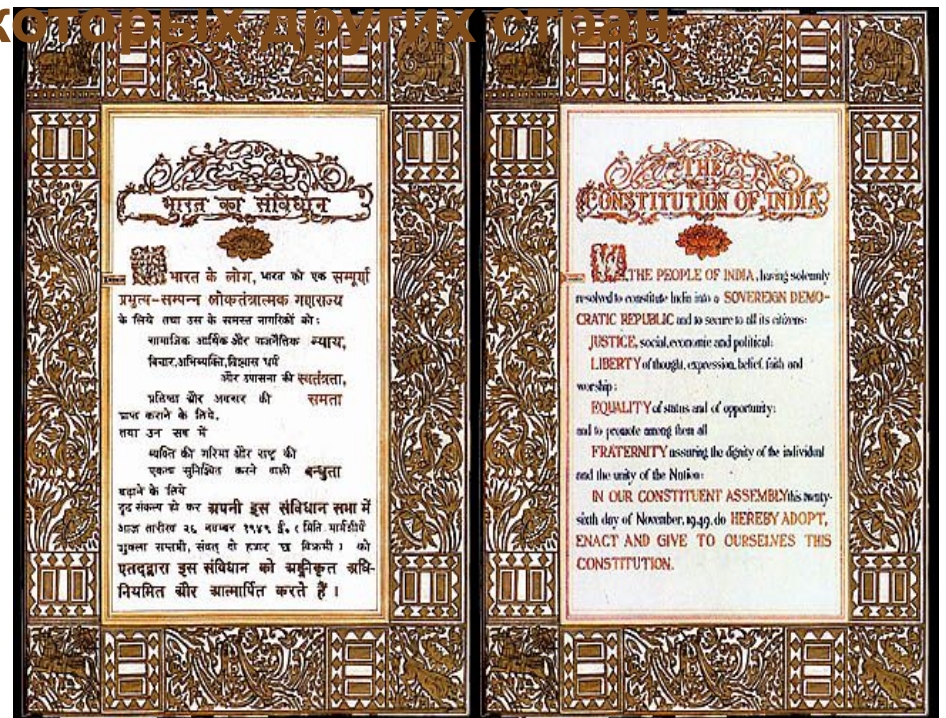 которых других стран.
भारत का संविधान
भारत के लोग, भारत को एक सम्पूर्ण
प्रभुत्व-सम्पन्न लोकतंत्रात्मक गणराज्य
के लिये तथा उस के समस्त नागरिकों को:
सामाजिक आर्थिक और राजनैतिक न्याय,
विचार, अभिव्यक्ति, विश्वास धर्म
और उपासना की स्वतंत्रता,
प्रतिष्ठा और अवसर की समता
प्राप्त कराने के लिये,
तथा उन सब में
व्यक्ति की गरिमा और राष्ट्र की
एकता सुनिश्चित करने वाली बन्धुता
बढ़ाने के लिये
दृढ़ संकल्प हो कर अपनी इस संविधान सभा में
आज तारीख २६ नवम्बर १९४९ ई. (मिति मार्गशीर्ष
शुक्ला सप्तमी, संवत् दो हजार छ विक्रमी) को
एतद्द्वारा इस संविधान को अङ्गीकृत अधि-
नियमित और आत्मार्पित करते हैं ।
THE
CONSTITUTION OF INDIA
WE, THE PEOPLE OF INDIA, having solemnly
resolved to constitute India into a SOVEREIGN DEMO-
CRATIC REPUBLIC and to secure to all its citizens:
JUSTICE, social, economic and political;
LIBERTY of thought, expression, belief, faith and
worship;
EQUALITY of status and of opportunity;
and to promote among them all
FRATERNITY assuring the dignity of the individual
and the unity of the Nation;
IN OUR CONSTITUENT ASSEMBLY this twenty-
sixth day of November, 1949, do HEREBY ADOPT,
ENACT AND GIVE TO OURSELVES THIS
CONSTITUTION.